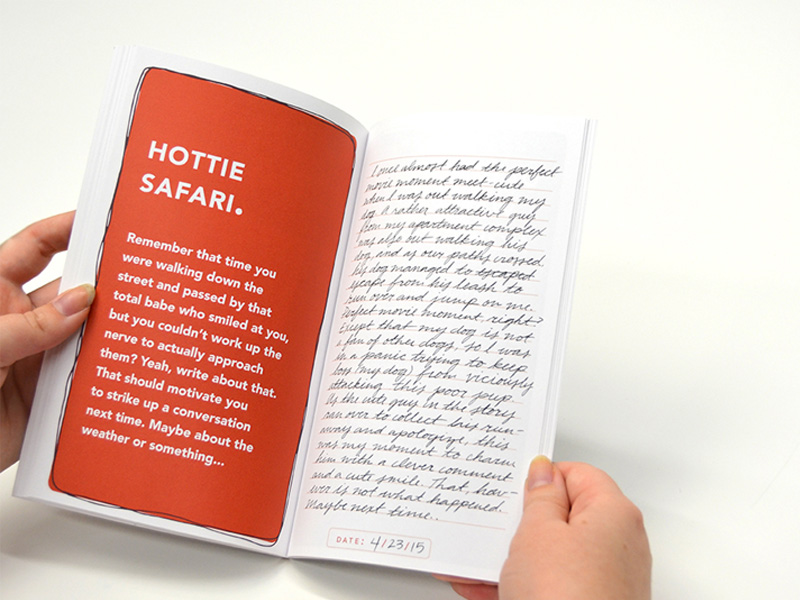 HOTTIE
SAFARI.
Remember that time you
were walking down the
street and passed by that
total babe who smiled at you,
but you couldn't work up the
nerve to actually approach
them? Yeah, write about that.
That should motivate you
to strike up a conversation
next time. Maybe about the
weather or something...
I once almost had the perfect
movie moment meet-cute
when I was out walking my
dog. A rather attractive guy
from my apartment complex
was also out walking his
dog, and as our paths crossed
his dog managed to escaped
escape from his leash to
run over and jump on me.
Perfect movie moment, right?
Except that my dog is not
a fan of other dogs. So I was
in a panic trying to keep
(my dog) from viciously
attacking this poor pup.
As the cute guy in the story
ran over to collect his run-
away and apologize, this
was my moment to charm
him with a clever comment
and a cute smile. That, how-
ever is not what happened.
Maybe next time..
DATE: 4/23/15